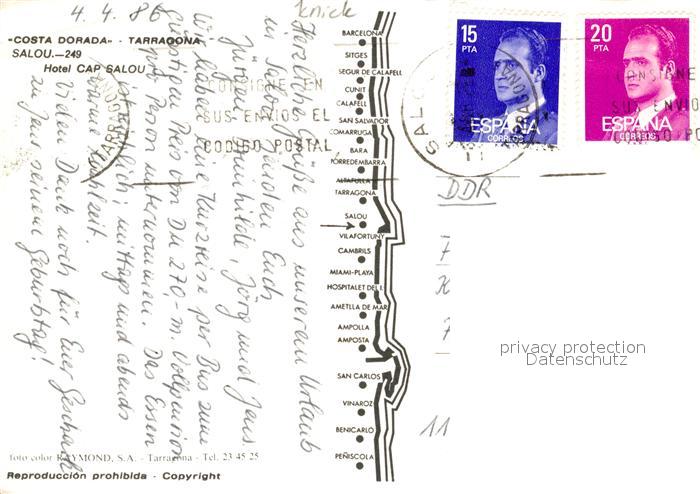 4. 4. 86
«COSTA DORADA» - TARRAGONA
SALOU.—249
Hotel CAP SALOU
Herzliche Grüße aus unserem Urlaub
in Salou senden Euch
Jürgen, Jörg und Jens
Wir haben eine Kurzreise per Bus zum
günstigen Preis von DM 270,- m. Vollpension
pro Person unternommen. Das Essen
ist reichlich, mittags und abends
warme Mahlzeit.
Vielen Dank noch für Euer Geschenk
zu Jens seinem Geburtstag!
CONSIGNE EN
SUS ENVIOS EL
CODIGO POSTAL
BARCELONA
SITGES
SEGUR DE CALAFELL
CUNIT
CALAFELL
SAN SALVADOR
COMARRUGA
BARA
TORREDEMBARRA
ALTAFULLA
TARRAGONA
SALOU
VILAFORTUNY
CAMBRILS
MIAMI-PLAYA
HOSPITALET DEL I.
AMETLLA DE MAR
AMPOLLA
AMPOSTA
SAN CARLOS
VINAROZ
BENICARLO
PEÑISCOLA
15
PTA
ESPAÑA
CORREOS
20
PTA
ESPAÑA
CORREOS
CONSIGNE
SUS ENVIO
CODIGO PO
DDR
11
privacy protection
Datenschutz
foto color RAYMOND, S.A. - Tarragona - Tel. 23 45 25
Reproducción prohibida - Copyright